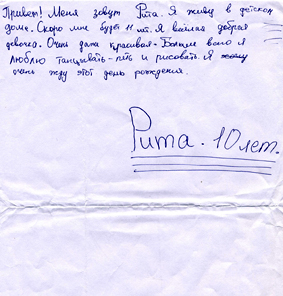 Привет! Меня зовут Рита. Я живу в детском
доме. Скоро мне будет 11 лет. Я весёлая добрая
девочка. Очень даже красивая. Больше всего я
люблю танцывать, петь и рисовать. Я
очень жду этот день рождения.
Рита. 10 лет.